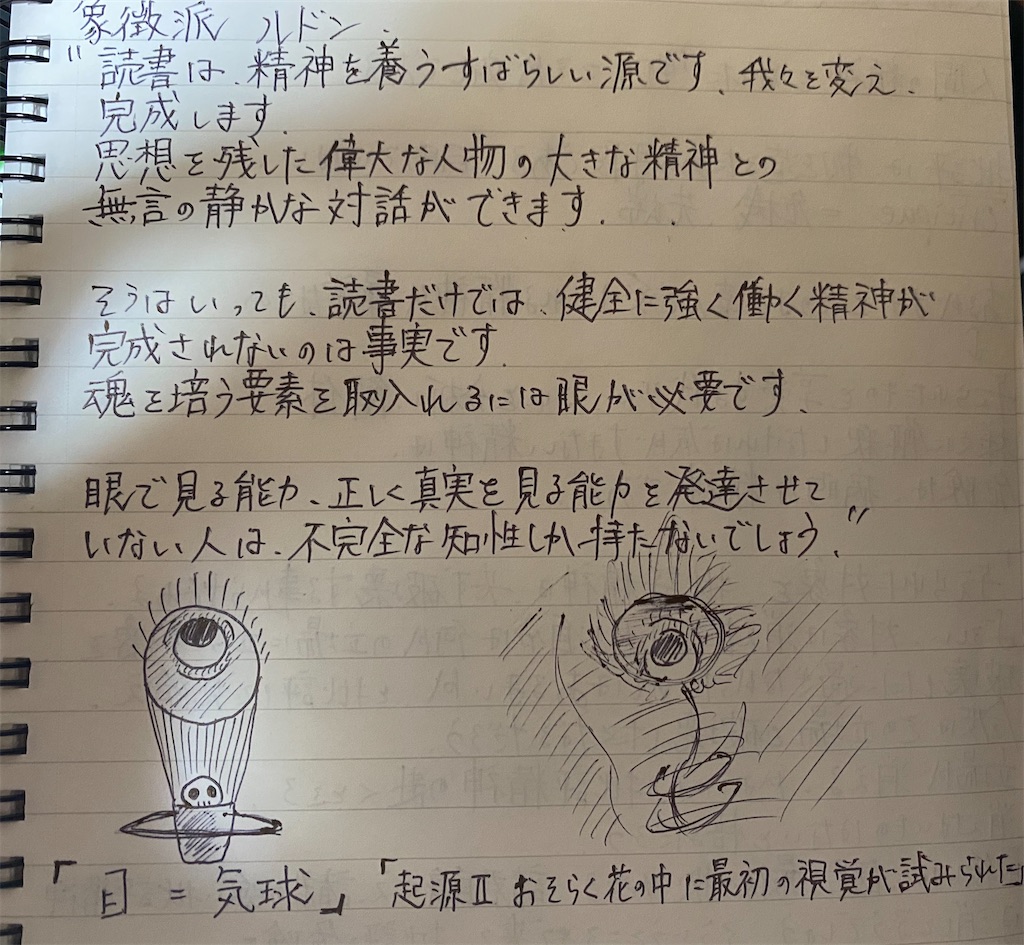 象徴派 ルドン.
"読書は、精神を養うすばらしい源です、我々を変え、
完成します.
思想を残した偉大な人物の大きな精神との
無言の静かな対話ができます.
そうはいっても、読書だけでは、健全に強く働く精神が
完成されないのは事実です.
魂を培う要素を取入れるには眼が必要です、
眼で見る能力、正しく真実を見る能力を発達させて
いない人は、不完全な知性しか持たないでしょう."
「目=気球」 「起源Ⅱ おそらく花の中に最初の視覚が試みられた」